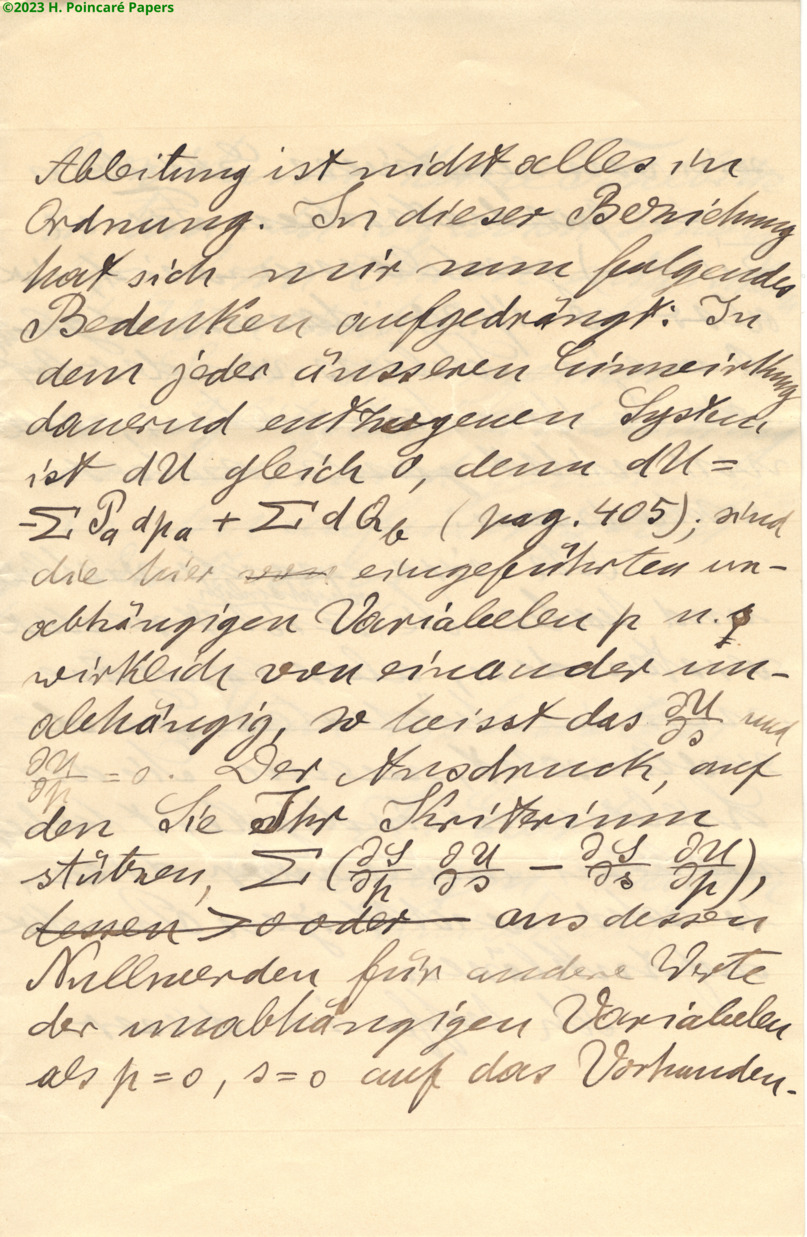 ©2023 H. Poincaré Papers
Ableitung ist nicht alles in
Ordnung. In dieser Beziehung
hat sich mir nun folgendes
Bedenken aufgedrängt: In
dem jeder äusseren Einwirkung
dauernd entzogenen System
ist dU gleich 0, denn dU =
-Σ Pₐ dpₐ + Σ dQ_b (pag. 405); sind
die hier eingeführten un-
abhängigen Variabelen p u.
wirklich von einander un-
abhängig, so heisst das ∂U/∂s und
∂U/∂p = 0. Der Ausdruck, auf
den Sie Ihr Kriterium
stützen, Σ (∂S/∂p ∂U/∂s − ∂S/∂s ∂U/∂p),
dessen > 0 oder aus dessen
Nullwerden für andere Werte
der unabhängigen Variabelen
als p = 0, s = 0 auf das Vorhanden-